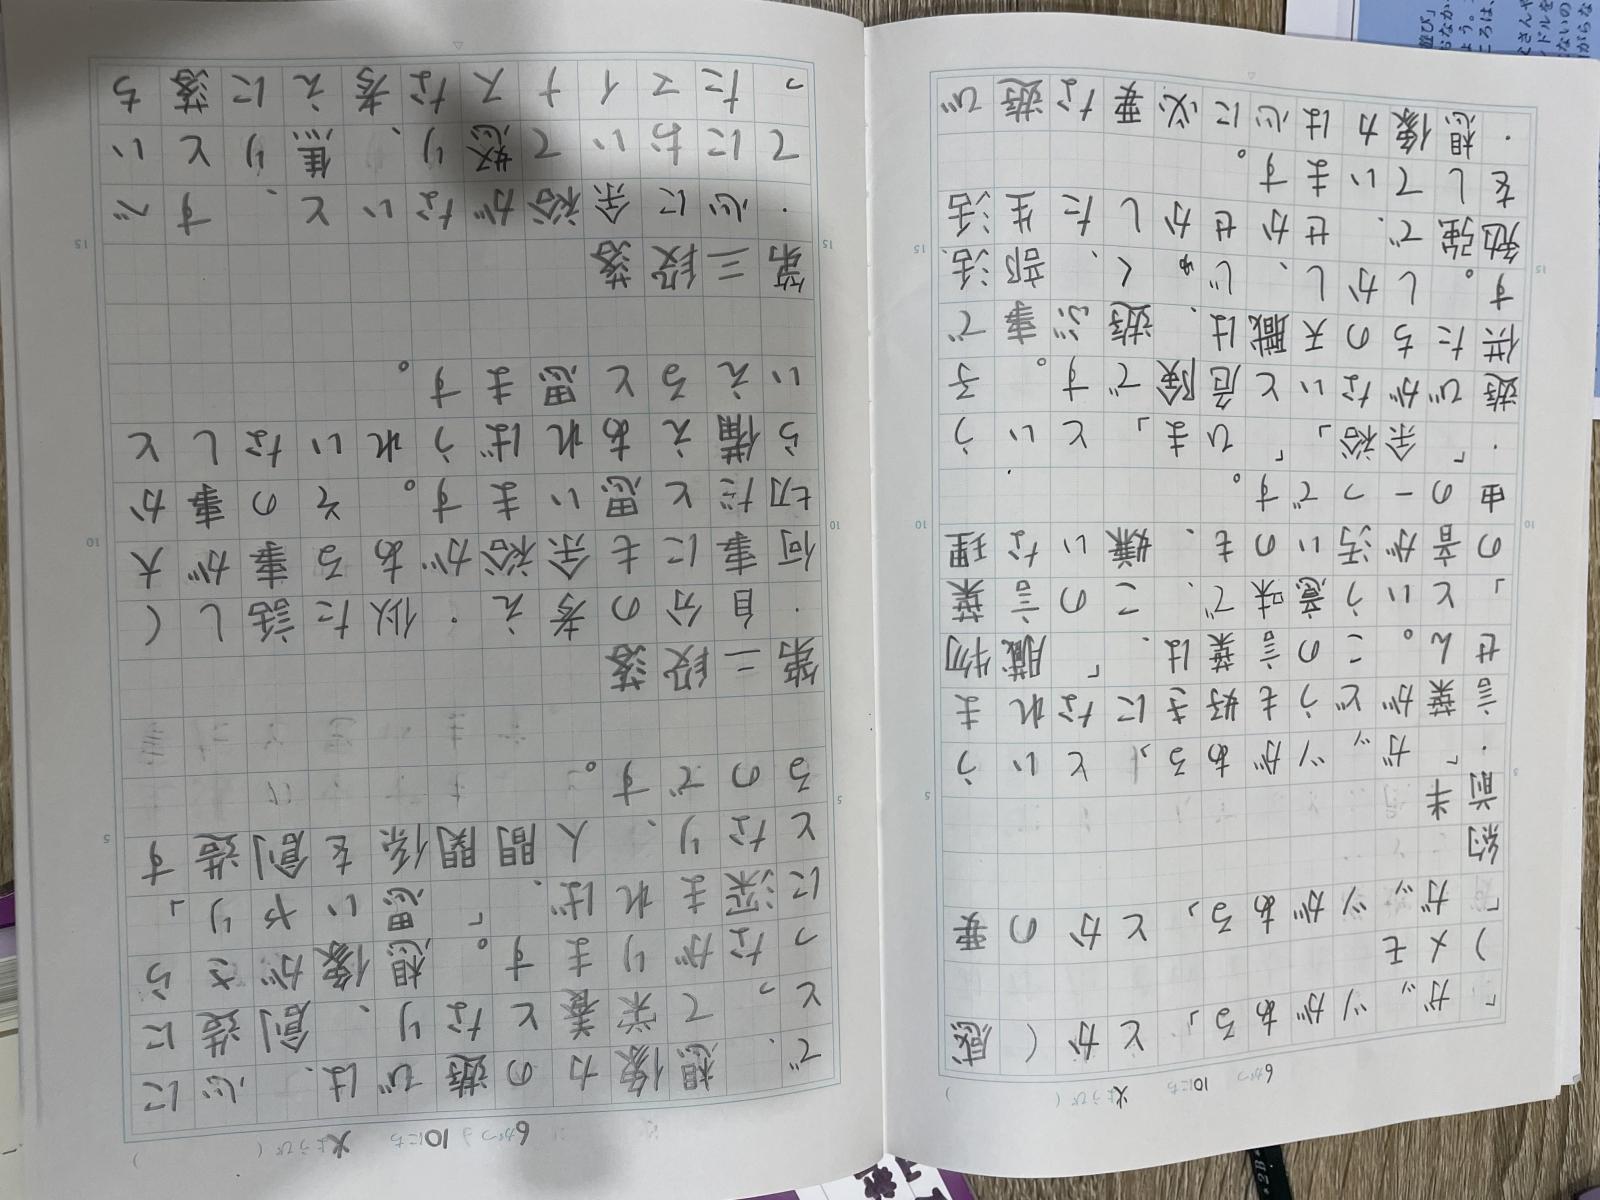 6がつ 10にち 火ようび (  )
「ガッツがある」とか(感
)メモ
「ガッツがある」とかの要
約
前半
・「ガッツがある」という
言葉がどうも好きになれま
せん。この言葉は、「臓物
」という意味で、この言葉
の音が汚いのも、嫌いな理
由の一つです。
・「余裕」「ひま」という
遊びがないと危険です。子
供たちの天職は、遊ぶ事で
す。しかし、じゅく、部活、
勉強で、せかせかした生活
をしています。
・想像力は心に必要な遊び
5
10
15
6がつ 10にち 火ようび (  )
で、想像力の遊びは、心に
とって栄養となり、創造に
つながります。想像がさら
に深まれば、「思いやり」
となり、人間関係を創造す
るのです。
第二段落
・自分の考え・似た話し(
何事にも余裕がある事が大
切だと思います。その事か
ら備えあればうれいなしと
いえると思います。
第三段落
・心に余裕がないと、すべ
てにおいて怒り、焦りとい
ったマイナスな考えに落ち
5
10
15
2B